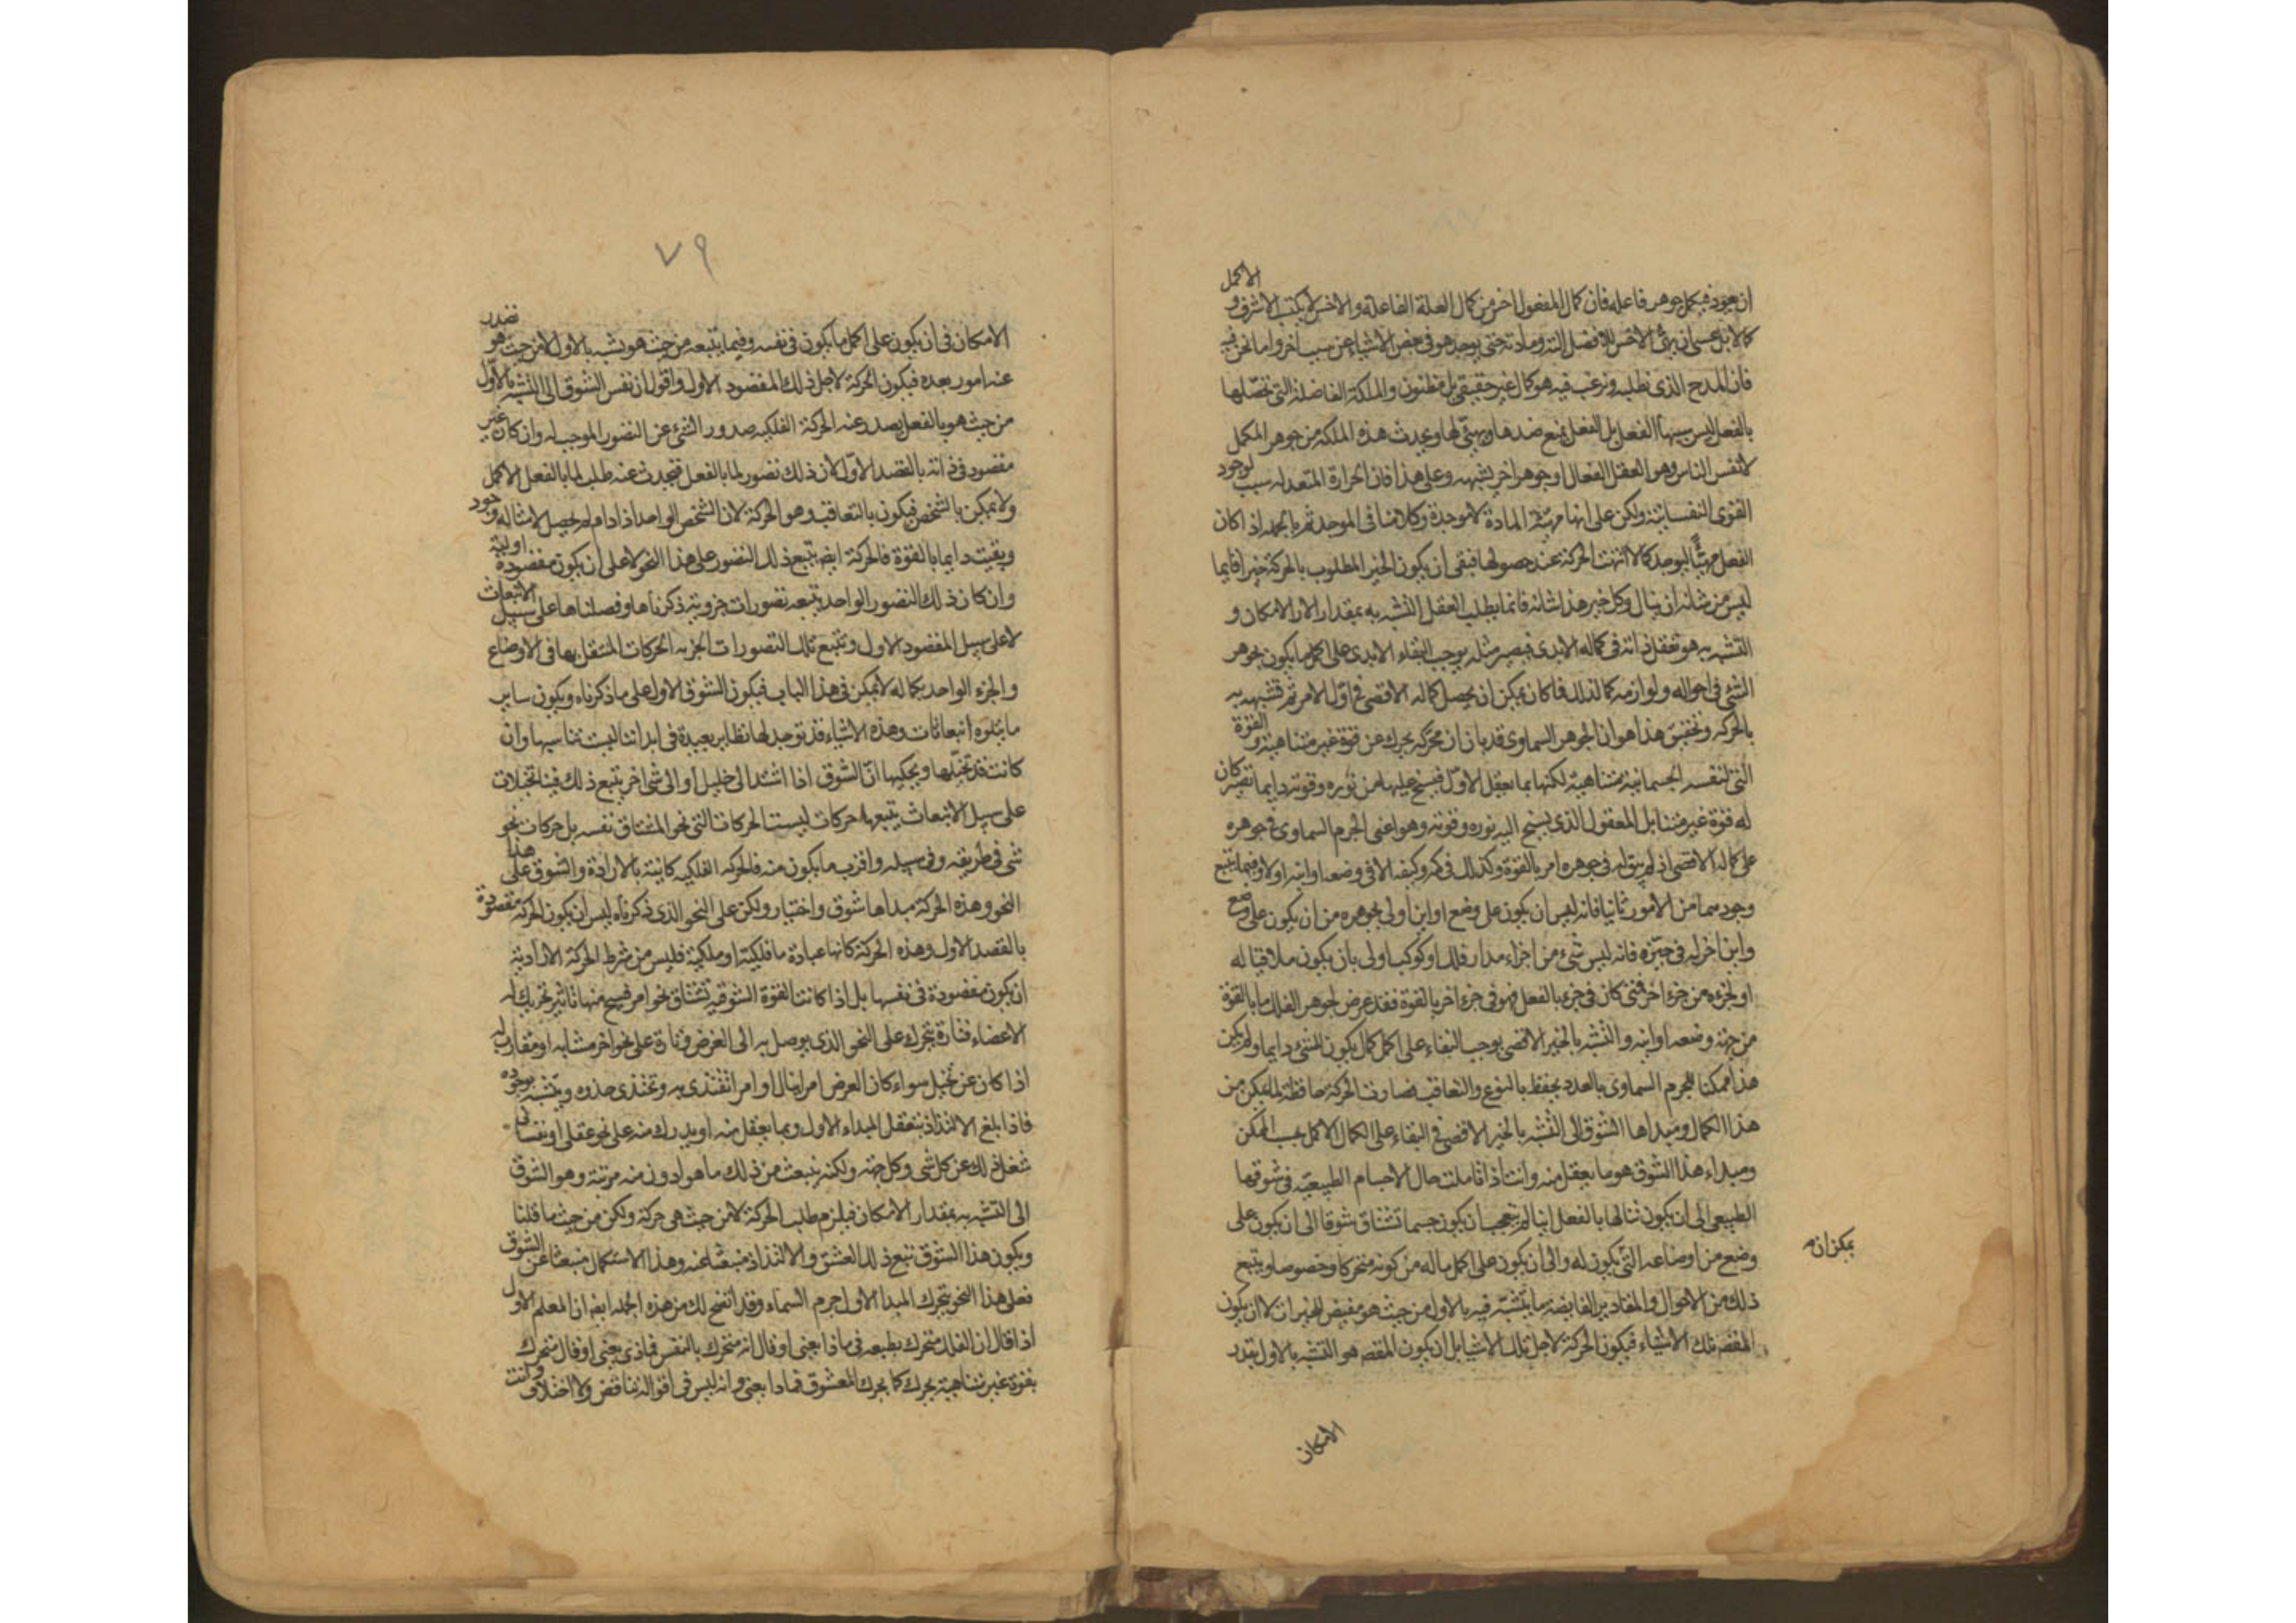 ان يعود فيكمل جوهر فاعله فان كمال المفعول اخس من كمال العلة الفاعلة والاخس لا يكسب الاشرف و الاكمل
كمالا بل عسى ان يهئ الاخس للافضل الته ومادته حتى يوجد هو فى بعض الاشياء عن سبب اخر واما نحن فيه
فان المدح الذى نطلبه ونرغب فيه هو كمال غير حقيقى بل مظنون والملكة الفاضلة التى نحصّلها
بالفعل ليس سببها الفعل بل الفعل يمنع ضدها ويهيّئ لها ويحدث هذه الملكه من جوهر المكمل
لانفس الناس وهو العقل الفعال او جوهر اخر يشبهه وعلى هذا فان الحرارة المتعدله سبب لوجود
القوى النفسانية ولكن على انها مهيئة المادة لا موجدة وكلامنا فى الموجد ثم بالجمله اذا كان
الفعل مهيّئًا ليوجد كمالا انتهت الحركة عند حصولها فبقى ان يكون الخير المطلوب بالحركة خيرا قايما
ليس من شانه ان ينال وكل خير هذا شانه فانما يطلب العقل التشبه به بمقدار الامكان و
التشبه به هو تعقل ذاته فى كماله الابدى فيصير مثله يوجب البقاء الابدى على اكمل ما يكون بجوهر
الشئ فى احواله ولوازمه كما لذلك فما كان يمكن ان يحصل كماله الاقصى فى اول الامر تم تشبهه به
بالحركه وتحقيق هذا هو ان الجوهر السماوى قد بان ان محركه يحرك عن قوة غير متناهية والقوة
التى لنفسه الجسمانية متناهية لكنها بما يعقل الاول فيسنح عليها من نوره وقوته دايما تصير كان
له قوة غير متنا بل المعقول الذى يسنح اليه نوره وقوته وهو اعنى الجرم السماوى فى جوهره
على كماله الاقصى اذ لم يبق له فى جوهره امر بالقوة وكذلك فى كمه وكيفه الا فى وضعه او اينه اولا وفيما يتبع
وجودهما من الامور ثانيا فانه ليس ان يكون على وضع او اين اولى بجوهره من ان يكون على وضع
واين اخر له فى حيزه فانه ليس شىء من اجزاء مدار فلك او كوكب اولى بان يكون ملاقيا له
او لجزءه من جزء اخر فمتى كان فى جزء بالفعل فهو فى جزء اخر بالقوة فقد عرض لجوهر الفلك ما بالقوة
من جهة وضعه او اينه والتشبه بالخير الاقصى يوجب البقاء على اكمل كمال يكون للشئ دايما ولم يكن
هذا ممكنا للجرم السماوى بالعدد فحفظ بالنوع والتعاقب فصارت الحركة حافظة لما يمكن من
هذا الكمال ومبداها الشوق الى التشبه بالخير الاقصى فى البقاء على الكمال الاكمل بحسب الممكن
ومبداء هذا الشوق هو ما يعقل منه وانت اذا تاملت حال الاجسام الطبيعيّة فى شوقها
الطبيعى الى ان يكون بالفعل اينا لم تتعجب ان يكون جسما تشتاق شوقا الى ان يكون على
وضع من اوضاعه التى يكون له والى ان يكون على اكمل ماله من كونه متحركا وخصوصا ويتبع
يمكن ان
ذلك من الاحوال والمقادير الفايضه ما يتشبّه فيه بالاول من حيث هو مفيض للخيرات لا ان يكون
المقصد تلك الاشياء فيكون الحركة لاجل تلك الاشيا بل ان يكون المقصد هو التشبه بالاول بقدر
الامكان
٧٩
الامكان فى ان يكون على اكمل ما يكون فى نفسه وفيما يتبعه من حيث هو تشبه بالاول لا من حيث هو تصدر
عنه امور بعده فيكون الحركة لاجل ذلك المقصود الاول واقول ان نفس الشوق الى التشبه بالاوّل
من حيث هو بالفعل يصدر عنه الحركة الفلكيه صدور الشئ عن التصور الموجب له وان كان غير
مقصود فى ذاته بالقصد الاوّل لان ذلك تصور لما بالفعل فيحدث عنه طلب لما بالفعل الاكمل
ولا يمكن بالشخص فيكون بالتعاقب وهو الحركة لان الشخص الواحد اذا دام لم يحصل لامثاله وجود
وبقيت دايما بالقوة فالحركة ايضا تتبع ذلك التصور على هذا النحو لا على ان يكون مقصودة اولية
وان كان ذلك التصور الواحد يتبعه تصورات جزوية ذكرناها وفصلناها على سبيل الانبعاث
لا على سبيل المقصود الاول وتتبع تلك التصورات الجزيه الحركات المنتقل بها فى الاوضاع
والجزء الواحد بكماله لا يمكن فى هذا الباب فيكون الشوق الاول على ما ذكرناه ويكون ساير
ما يتلوه انبعاثات وهذه الاشياء قد توجد لها نظاير بعيدة فى ابداننا ليست تناسبها وان
كانت قد تخيلها ويحكيها انّ الشوق اذا اشتد الى خليل او الى شى اخر يتبع ذلك فينا تخيلات
على سبيل الانبعاث يتبعها حركات ليست الحركات التى نحو المشتاق نفسه بل حركات نحو
شى فى طريقه وفى سبيله واقرب ما يكون منه فالحركه الفلكيه كاينة بالارادة والشوق على هذا
النحو وهذه الحركة مبداها شوق واختيار ولكن على النحو الذى ذكرناه ليس ان يكون الحركة مقصودة
بالقصد الاول وهذه الحركة كانها عبادة ما فلكية او ملكية فليس من شرط الحركة الارادية
ان يكون مقصودة فى نفسها بل اذا كانت القوة الشوقيه تشتاق نحو امر يسيح منها تاثير تحرك له
الاعضاء فتارة يتحرك على النحو الذى يوصل به الى الغرض وتارة على نحو اخر مشابه او مقارب له
اذا كان عن تخيل سواء كان الغرض امرا ينال او امرا تقتدى به وتحتذى حذوه ويتشبه بوجوده
فاذا بلغ الالتذاذ بتعقل المبداء الاول وبما يعقل منه او يدرك منه على نحو عقلى او نفسانى
شغل ذلك عن كل شى وكل جهة ولكنه ينبعث من ذلك ما هو ادون منه مرتبة وهو الشوق
الى التشبه به بمقدار الامكان فيلزم طلب الحركة لا من حيث هى حركة ولكن من حيث ما قلنا
ويكون هذا الشوق تبع ذلك العشق والالتذاذ منبعثا عنه وهذا الاستكمال منبعثا عن الشوق
فعلى هذا النحو يتحرك المبدا الاول جرم السماء وقد اتضح لك من هذه الجمله ايضا ان المعلم الاول
اذا قال ان الفلك متحرك بطبعه فى ماذا يعنى او قال انه متحرك بالنفس فماذى يعنى او قال متحرك
بقوة غير متناهية يحرك كما يحرك المعشوق فماذا يعنى وانه ليس فى اقواله تناقض ولا اختلاف وانت